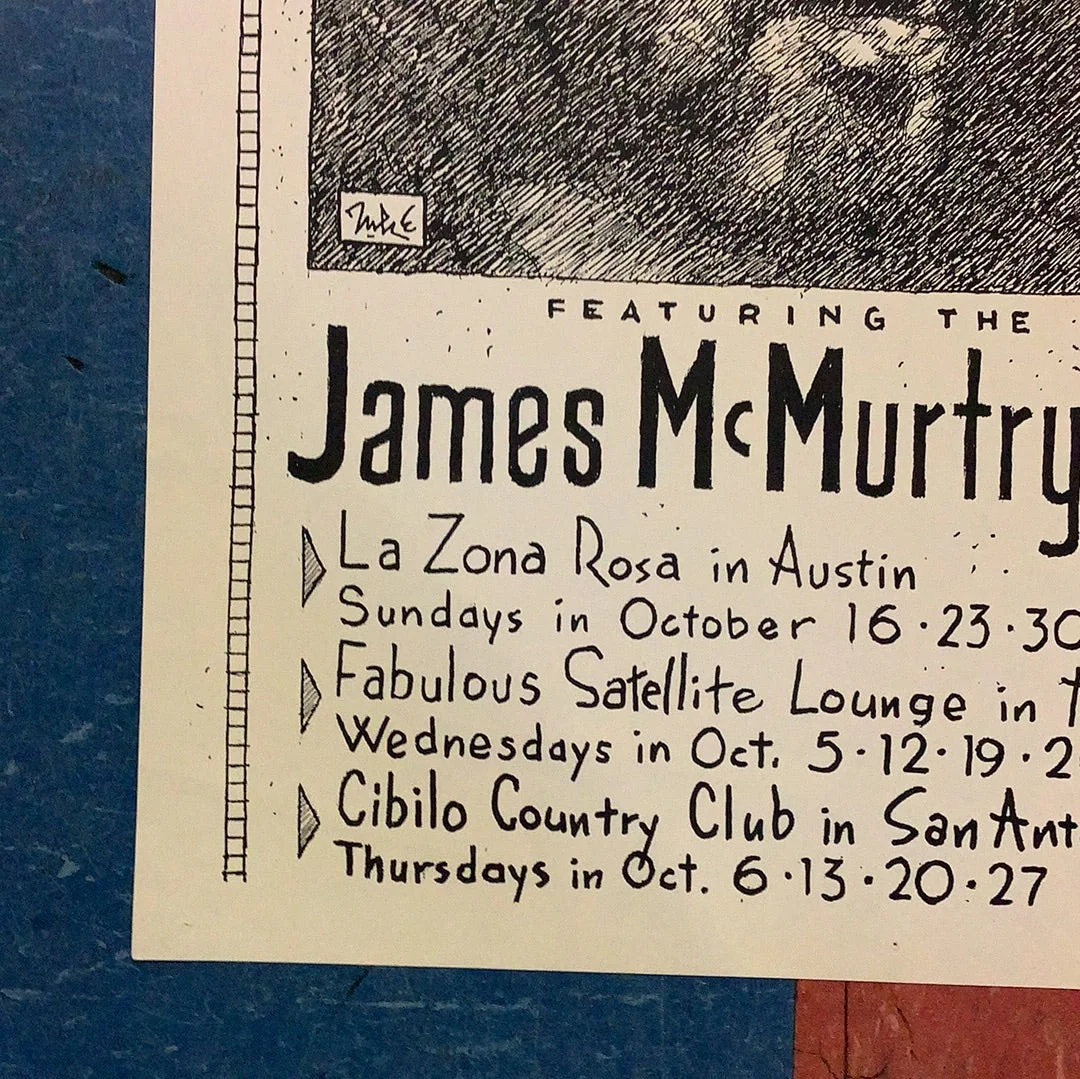 FEATURING THE
James McMurtry
La Zona Rosa in Austin
Sundays in October 16 · 23 · 30
Fabulous Satellite Lounge in
Wednesdays in Oct. 5 · 12 · 19 · 2
Cibilo Country Club in San Ant
Thursdays in Oct. 6 · 13 · 20 · 27